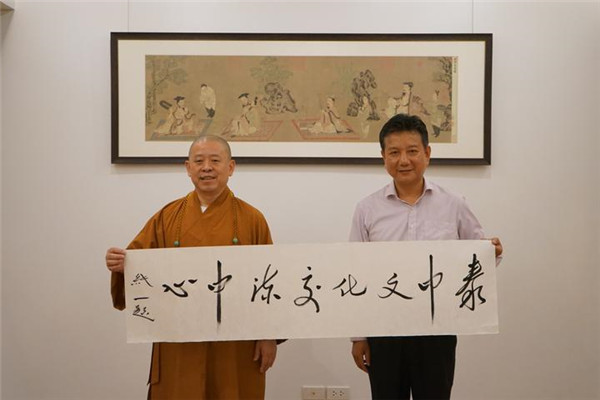 泰中文化交流中心
纯一题